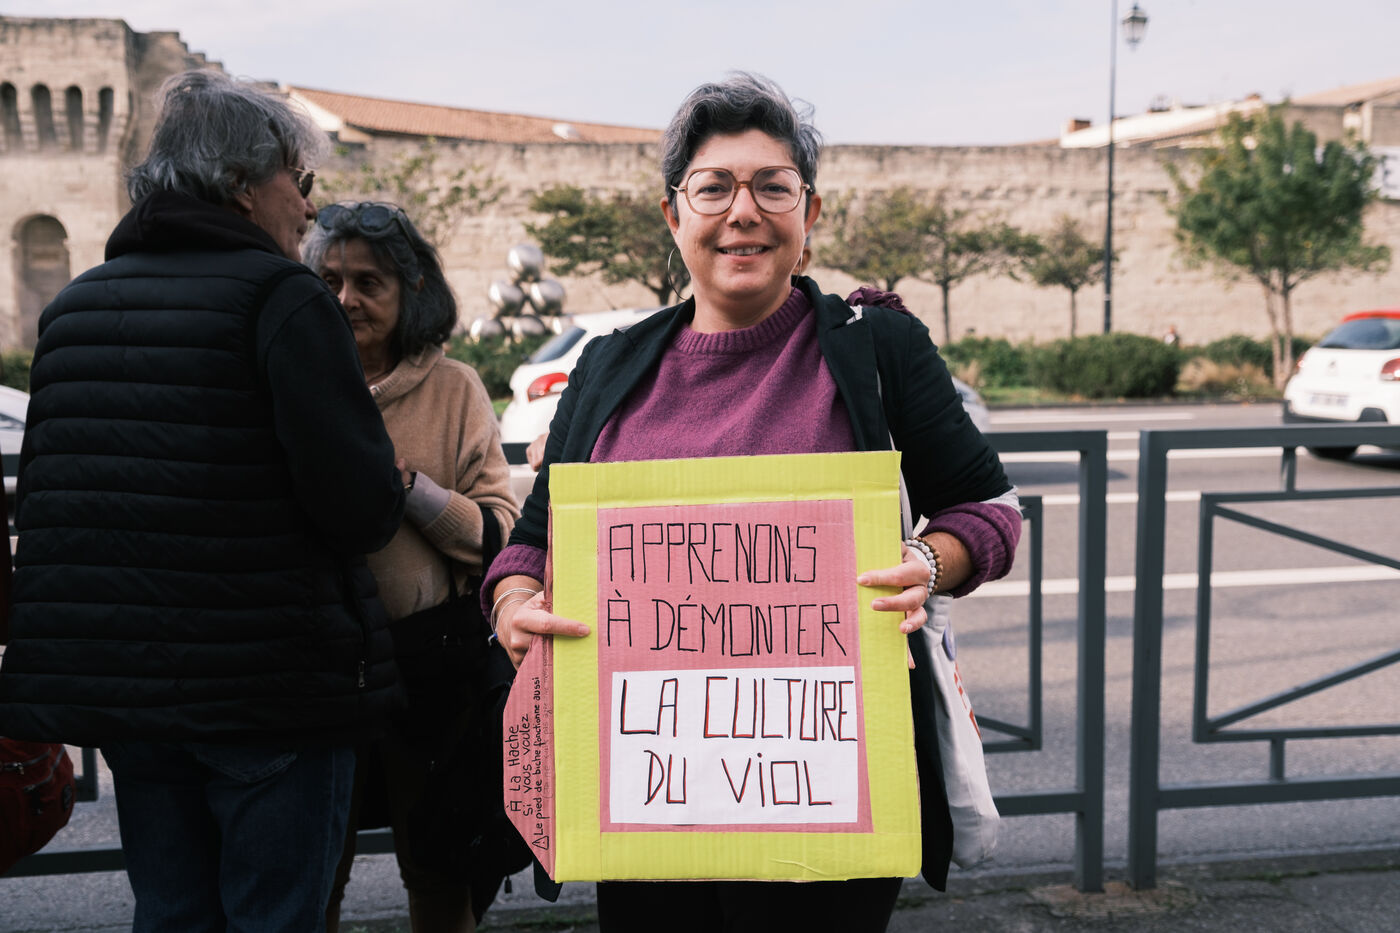 APPRENONS
À DÉMONTER
LA CULTURE
DU VIOL
À la Hache
Si vous voulez
⚠ Le pied de biche fonctionne aussi